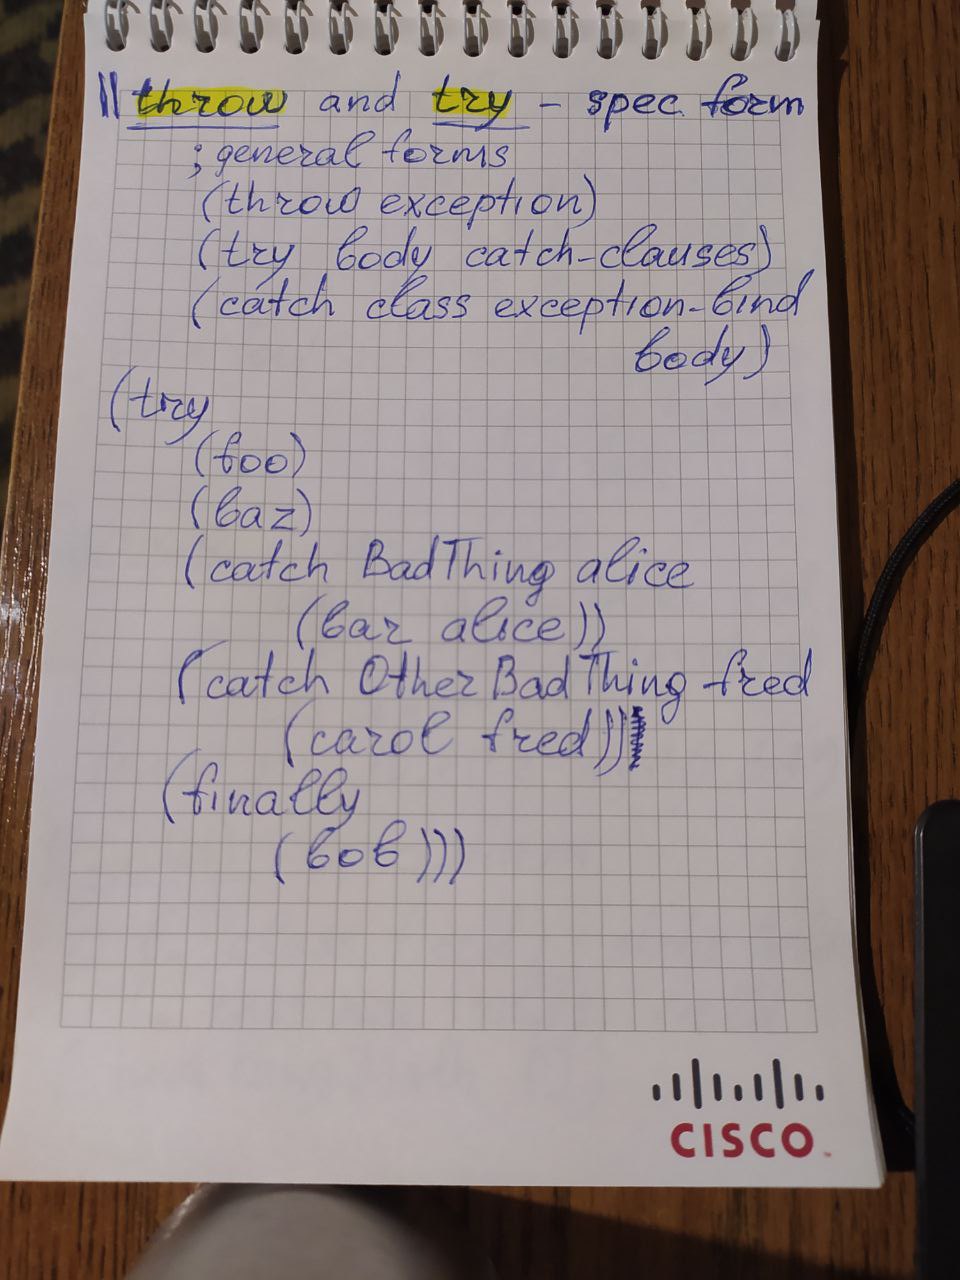 throw and try - spec. form
; general forms
(throw exception)
(try body catch-clauses)
(catch class exception-bind
body)
(try
(foo)
(baz)
(catch BadThing alice
(bar alice))
(catch OtherBadThing fred
(carol fred))
(finally
(bob)))
CISCO